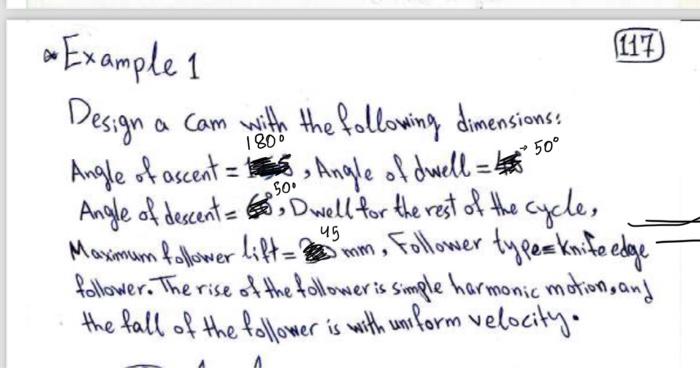 Example 1
117
Design a cam with the following dimensions:
Angle of ascent = 180°, Angle of dwell = 50°
Angle of descent = 50°, Dwell for the rest of the cycle,
Maximum follower lift = 45 mm, Follower type = knife edge
follower. The rise of the follower is simple harmonic motion, and
the fall of the follower is with uniform velocity.